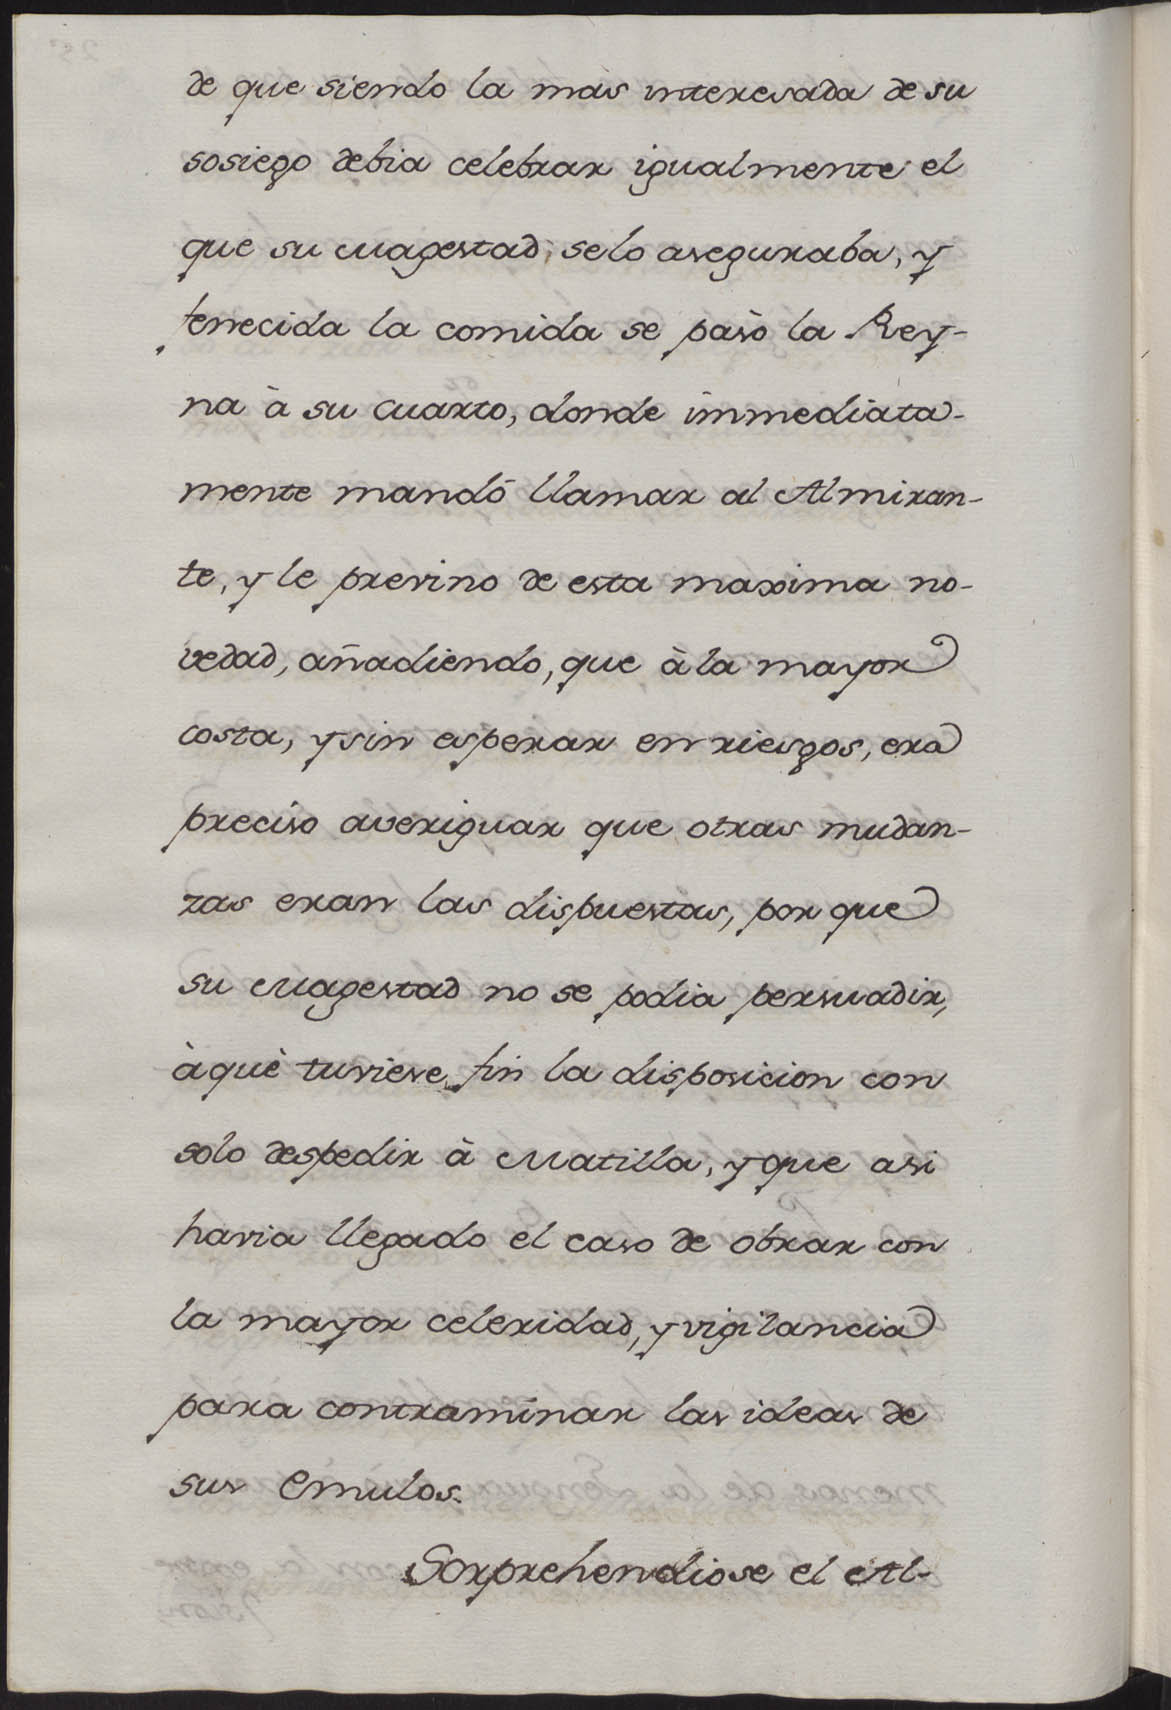 de que siendo la màs interesada de su
sosiego debia celebrar igualmente el
que su Magestad, selo aseguraba, y
fenecida la comida se pasò la Rey-
na à su cuarto, donde immediata-
mente mandó llamar al Almiran-
te, y le previno de esta maxima no-
vedad, añadiendo, que à la mayor
costa, y sin esperar en riesgos, era
preciso averiguar que otras mudan-
zas eran las dispuestas, por que
su Magestad no se podia persuadir,
à què tuviese fin la disposicion con
solo despedir à Matilla, y que asi
havia llegado el caso de obrar con
la mayor celeridad, y vigilancia
para contraminar las ideas de
sus Emulos.
Sorprehendiose el Al-